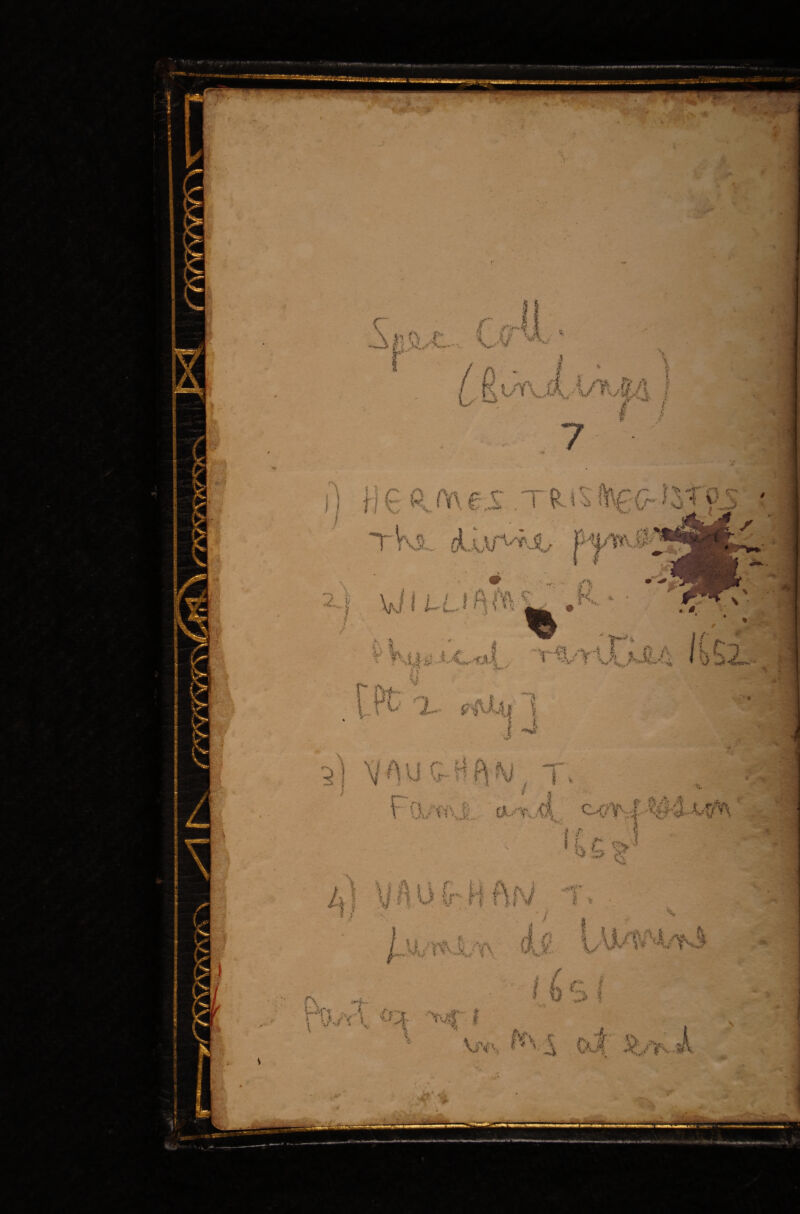 Spec. Coll.
(Bindings)
7
1) HERMES TRISMEGISTOS
The divine
2) WILLIAMS, R.
Physical rarities 1652
[Pt 2 only]
3) VAUGHAN, T.
Fame and confession
1658
4) VAUGHAN, T.
Lumen de Lumine
1651
Part of no 1
in MS at end